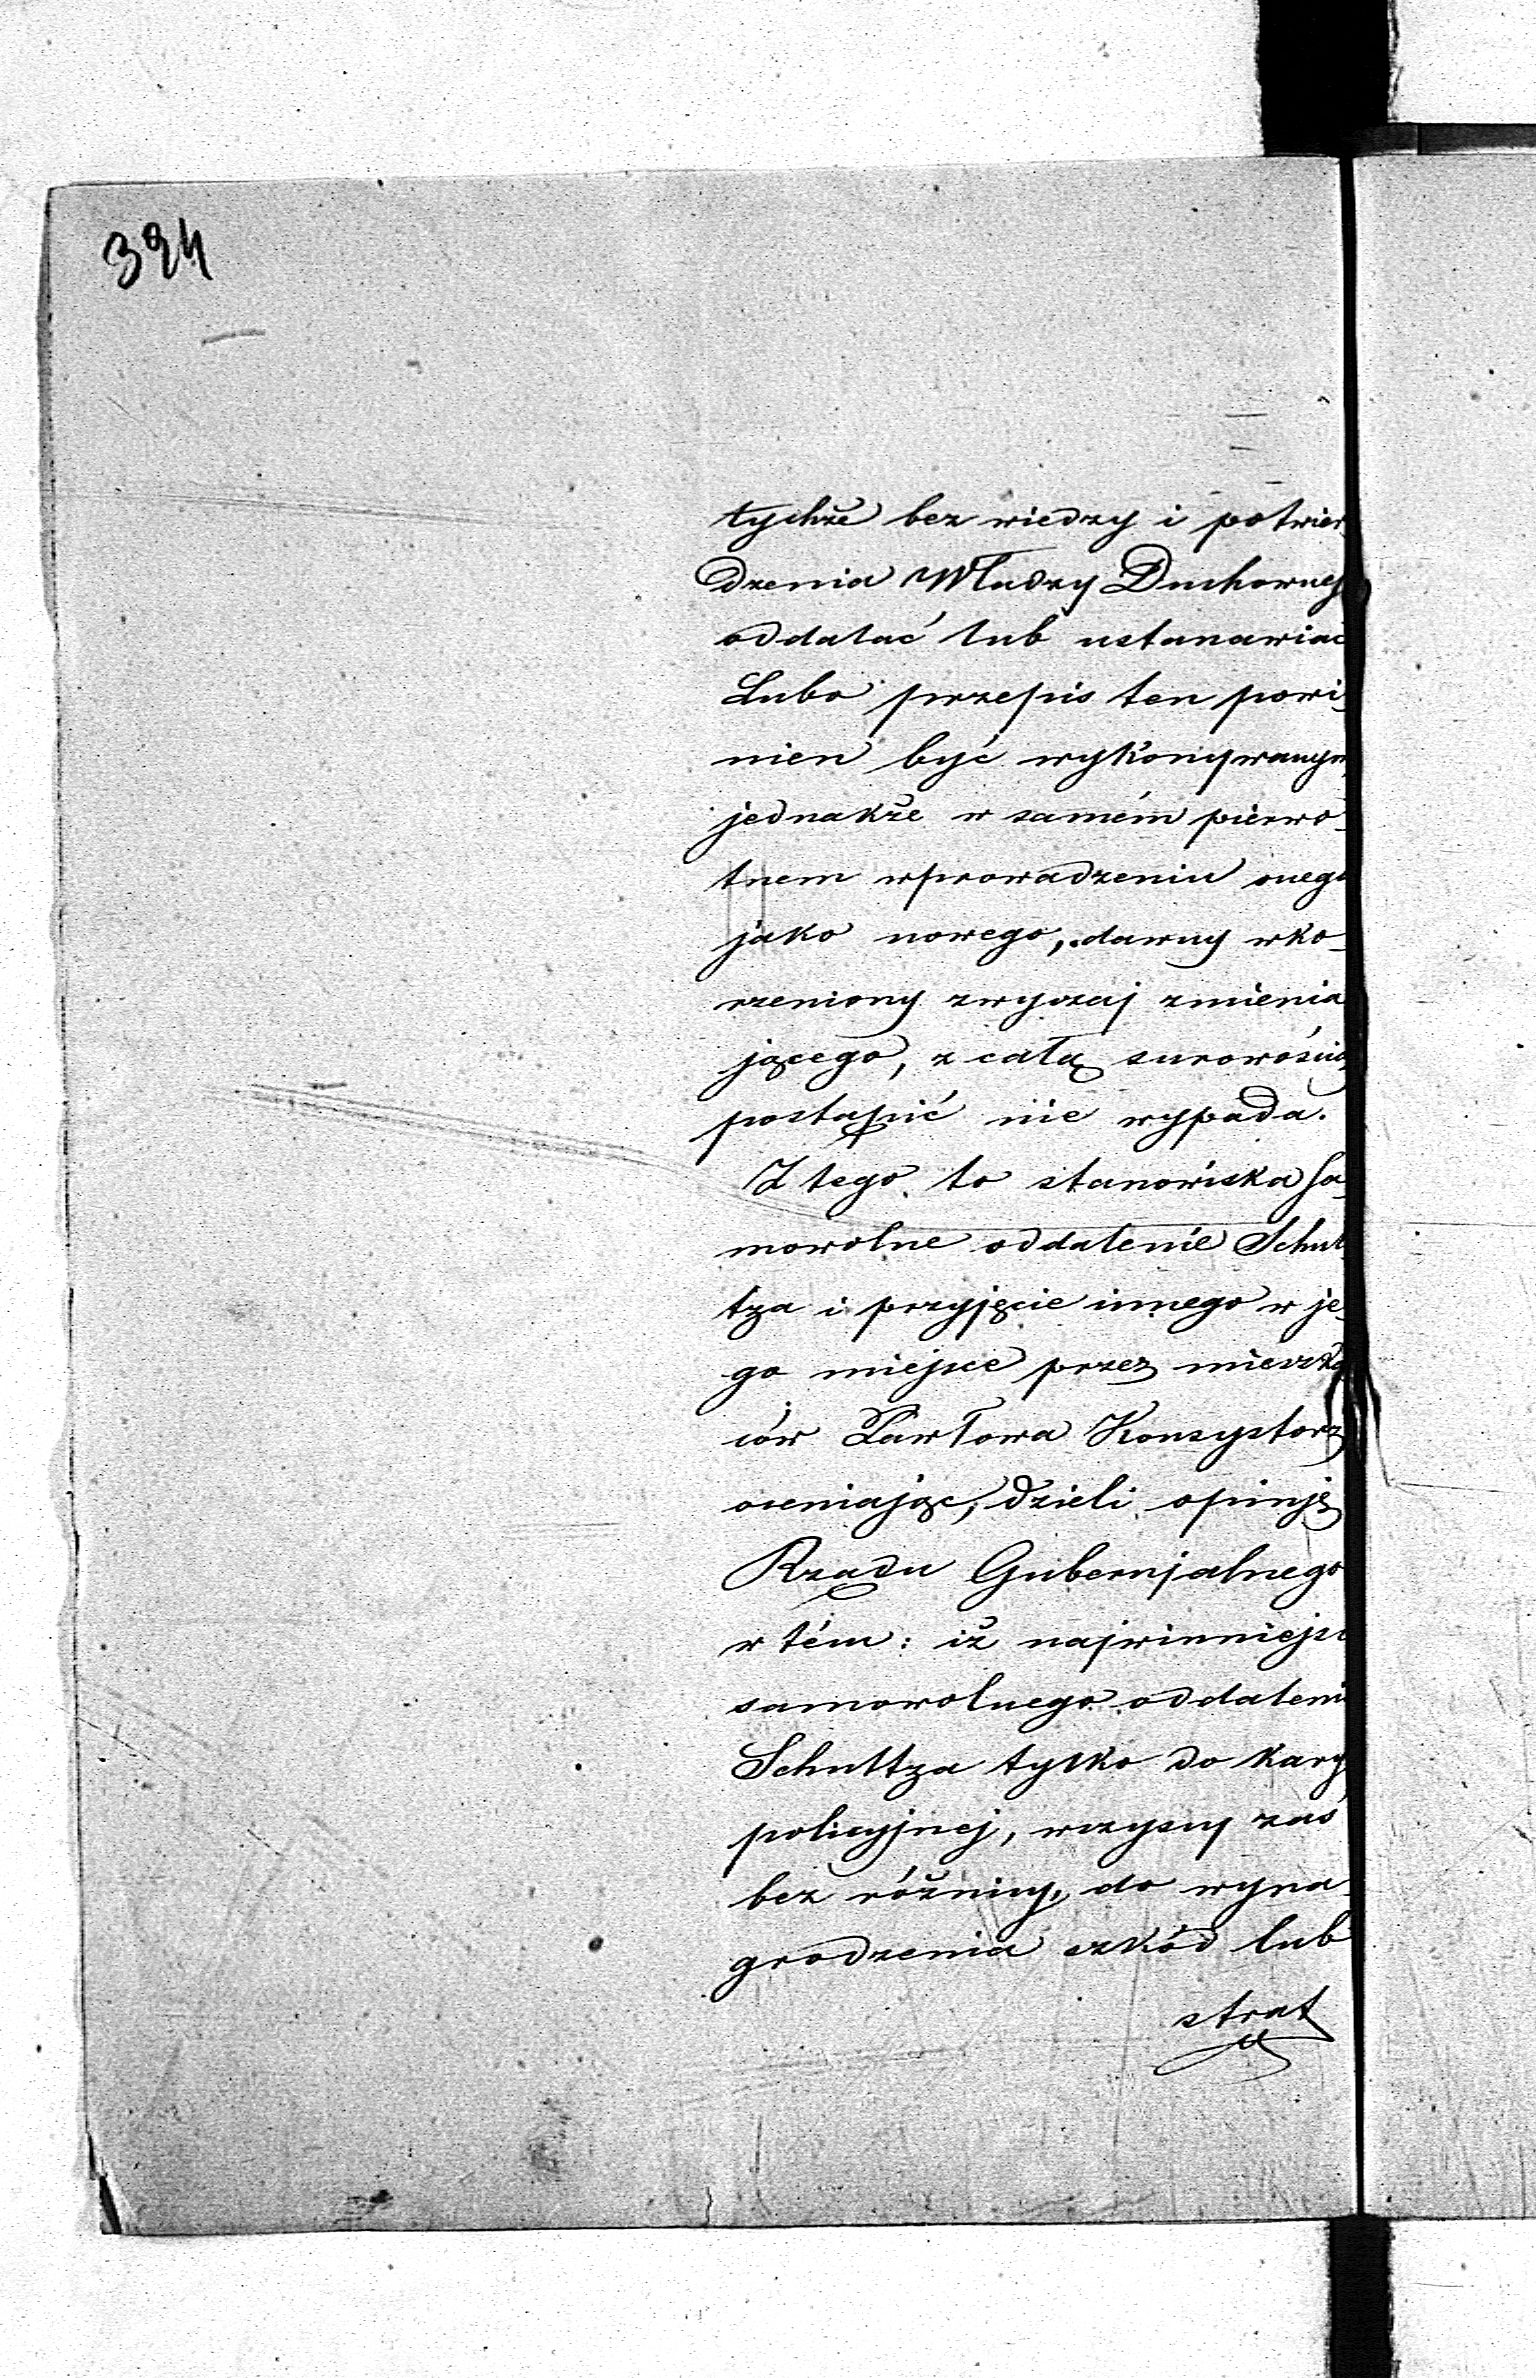 394
tychże bez wiedzy i potwier
dzenia Władzy Duchownej
oddalać lub ustanawiać
Lubo przepis ten powi
nien być wykonywanym
jednakże w samém pierwo-
tnem wprowadzeniu onego
jako nowego, dawny wko-
rzeniony zwyczaj zmienia
jącego, z całą surowością
postąpić nie wypada.
Z tego to stanowiska sa-
mowolne oddalenie Schul
tza i przyjęcie innego w je-
go miejsce przez mieszkań
ców Pawłowa Konsystorz
oceniając, dzieli opinję
Rządu Gubernjalnego
w tém: iż najwinniejsi
samowolnego oddaleni
Schultza tylko do kary
policyjnej, wszyscy zaś
bez różnicy, do wyna-
grodzenia szkód lub
strat